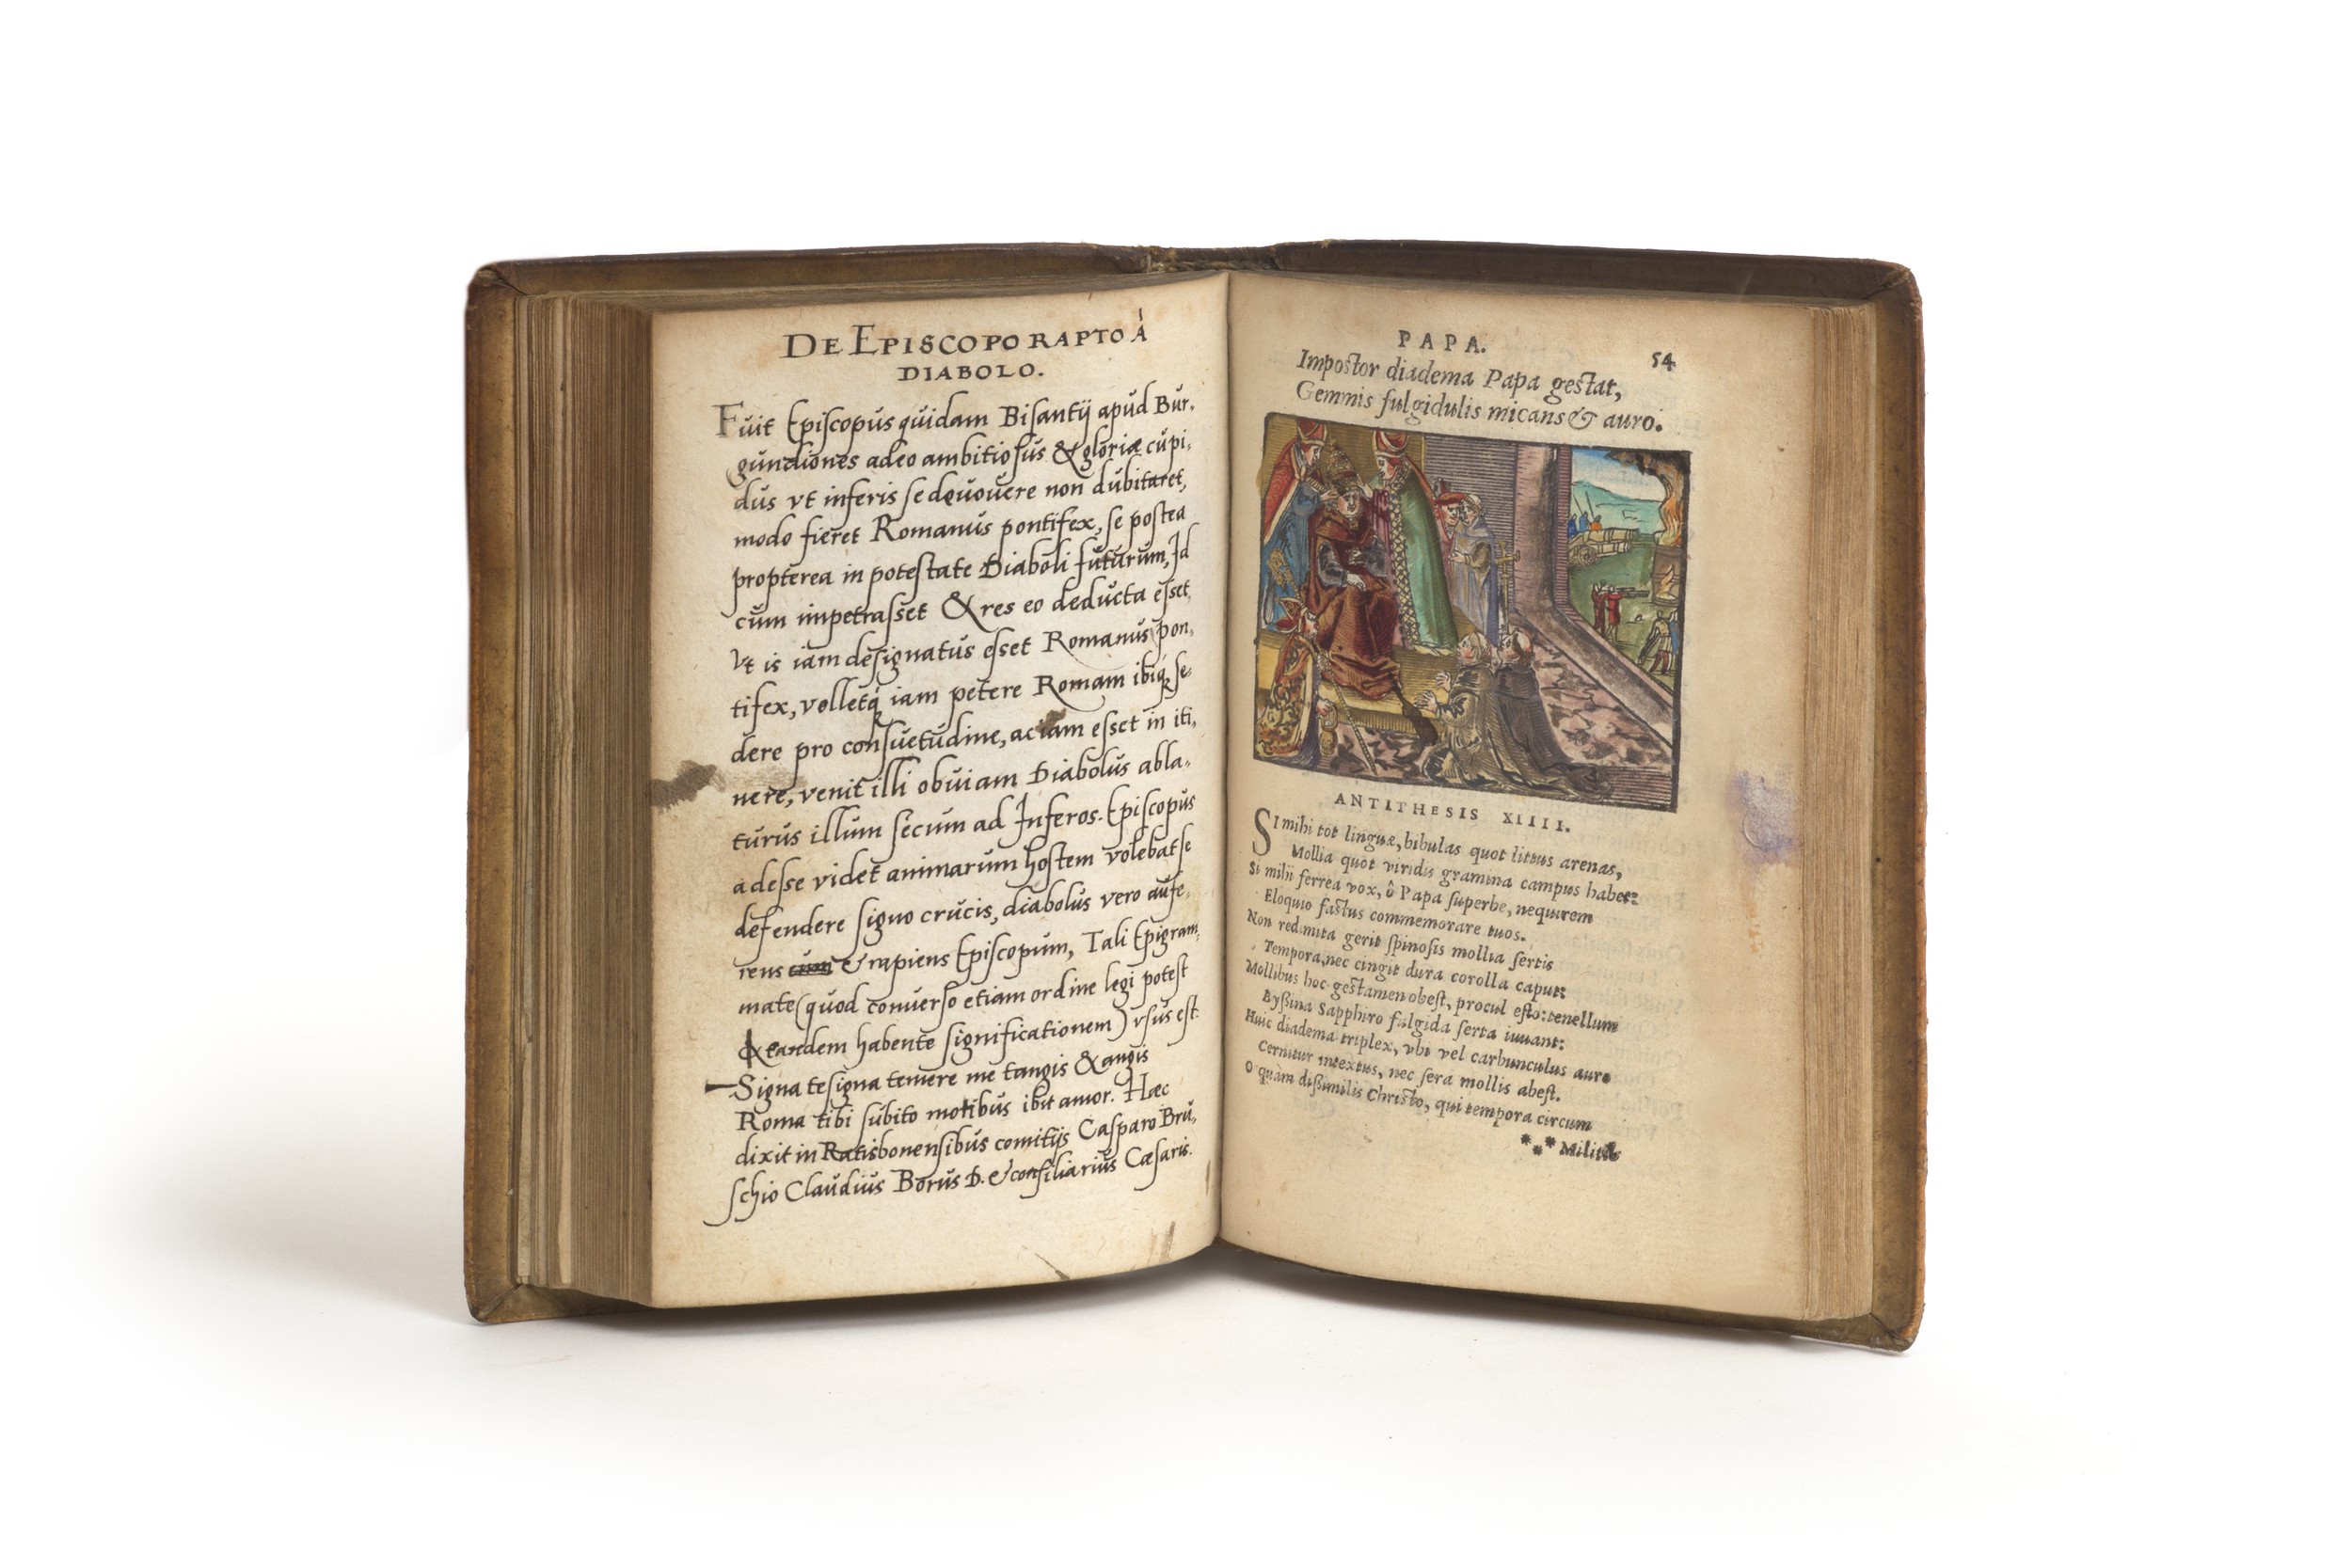 DE EPISCOPO RAPTO À
DIABOLO.
Fuit Episcopus quidam Bisantij apud Bur,
gundiones adeo ambitiosus & gloriæ cupi,
dus vt inferis se deuouere non dubitaret,
modo fieret Romanus pontifex, se postea
propterea in potestate Diaboli futurum, Id
cum impetrasset & res eo deducta esset,
Vt is iam designatus esset Romanus pon,
tifex, volletq́ iam petere Romam ibiq́ se,
dere pro consuetudine, ac iam esset in iti,
nere, venit illi obuiam Diabolus abla,
turus illum secum ad Inferos. Episcopus
adesse videt animarum hostem volebat se
defendere signo crucis, diabolus vero aufe,
rens cum & rapiens Episcopum, Tali Epigram,
mate (quod conuerso etiam ordine legi potest
& eandem habente significationem) vsus est.
Signa te signa temere me tangis & angis
Roma tibi subito motibus ibit amor. Hæc
dixit in Ratisbonensibus comitijs Casparo Bru,
schio Claudius Borus D. & consiliarius Cæsaris.
PAPA.
54
Impostor diadema Papa gestat,
Gemmis fulgidulis micans & auro.
ANTITHESIS XIIII.
SI mihi tot linguæ, bibulas quot littus arenas,
Mollia quot viridis gramina campus habet:
Si mihi ferrea vox, ô Papa superbe, nequirem
Eloquio fastus commemorare tuos.
Non redimita gerit spinosis mollia sertis
Tempora, nec cingit dura corolla caput:
Mollibus hoc gestamen obest, procul esto: tenellum
Byssina Sapphiro fulgida serta iuuant:
Huic diadema triplex, vbi vel carbunculus auro
Cernitur intextus, nec sera mollis abest.
O quàm dissimilis Christo, qui tempora circum
*⁎* Militis